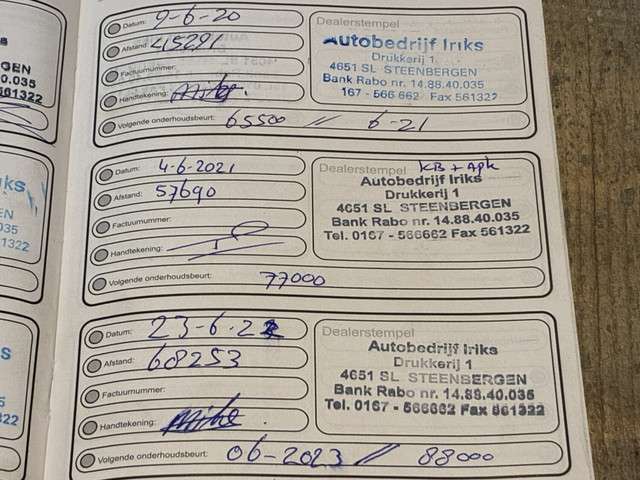 Datum: 9-6-20
Afstand: 45291
Factuurnummer:
Handtekening: Mike
Volgende onderhoudsbeurt: 65500 // 6-21
Dealerstempel
Autobedrijf Iriks
Drukkerij 1
4651 SL STEENBERGEN
Bank Rabo nr. 14.88.40.035
167 - 566 662 Fax 561322
Datum: 4-6-2021
Afstand: 57690
Factuurnummer:
Handtekening:
Volgende onderhoudsbeurt: 77000
Dealerstempel KB + Apk
Autobedrijf Iriks
Drukkerij 1
4651 SL STEENBERGEN
Bank Rabo nr. 14.88.40.035
Tel. 0167 - 566662 Fax 561322
Datum: 23-6-22
Afstand: 68253
Factuurnummer:
Handtekening: Mike
Volgende onderhoudsbeurt: 06-2023 // 88000
Dealerstempel
Autobedrijf Iriks
Drukkerij 1
4651 SL STEENBERGEN
Bank Rabo nr. 14.88.40.035
Tel. 0167 - 566662 Fax 561322
GEN
40.035
561322
ks
EN
035
1322
S
EN
035
322